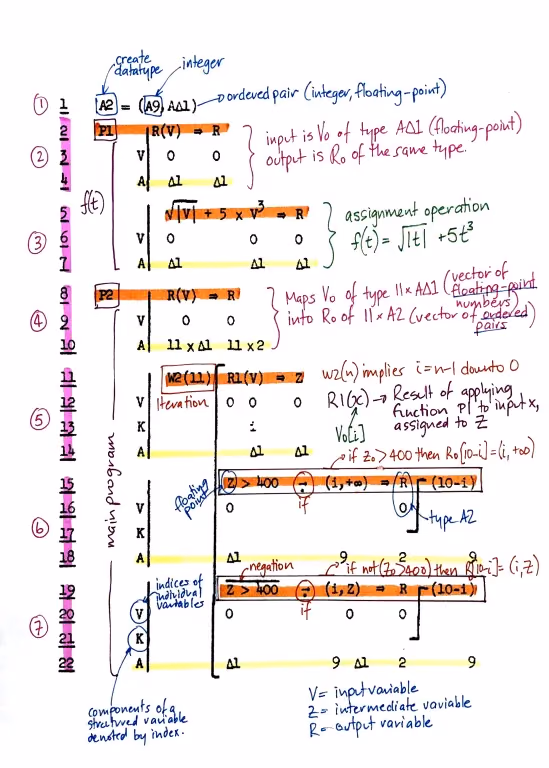 create
datatype
integer
① 1 A2 = (A9, AΔ1) → ordered pair (integer, floating-point)
2 P1 R(V) ⇒ R
input is V0 of type AΔ1 (floating-point)
② 3 V 0 0
output is R0 of the same type.
4 A Δ1 Δ1
f(t)
5 √|V| + 5 × V³ ⇒ R
assignment operation
③ 6 V 0 0 0
f(t) = √|t| + 5t³
7 A Δ1 Δ1 Δ1
8 P2 R(V) ⇒ R
Maps V0 of type 11 × AΔ1 (vector of
floating-point
numbers)
④ 9 V 0 0
into R0 of 11 × A2 (vector of ordered
pairs)
10 A 11 × Δ1 11 × 2
main program
11 W2(11) R1(V) ⇒ Z
W2(n) implies i = n-1 down to 0
Iteration
⑤ 12 V 0 0 0
R1(x) → Result of applying
function P1 to input x,
assigned to Z
13 K i
V0[i]
14 A Δ1 Δ1
→ if Z0 > 400 then R0[10-i] = (i, +∞)
floating
point
15 Z > 400 → (i, +∞) ⇒ R (10-i)
if
16 V 0 0
type A2
⑥ 17 K
18 A Δ1 9 2 9
negation
if not (Z0 > 400) then R[10-i] = (i, Z)
19 Z > 400 → (i, Z) ⇒ R (10-i)
if
indices of
individual
variables
20 V 0 0 0
⑦ 21 K
22 A Δ1 9 Δ1 2 9
components of a
structured variable
denoted by index.
V = input variable
Z = intermediate variable
R = output variable